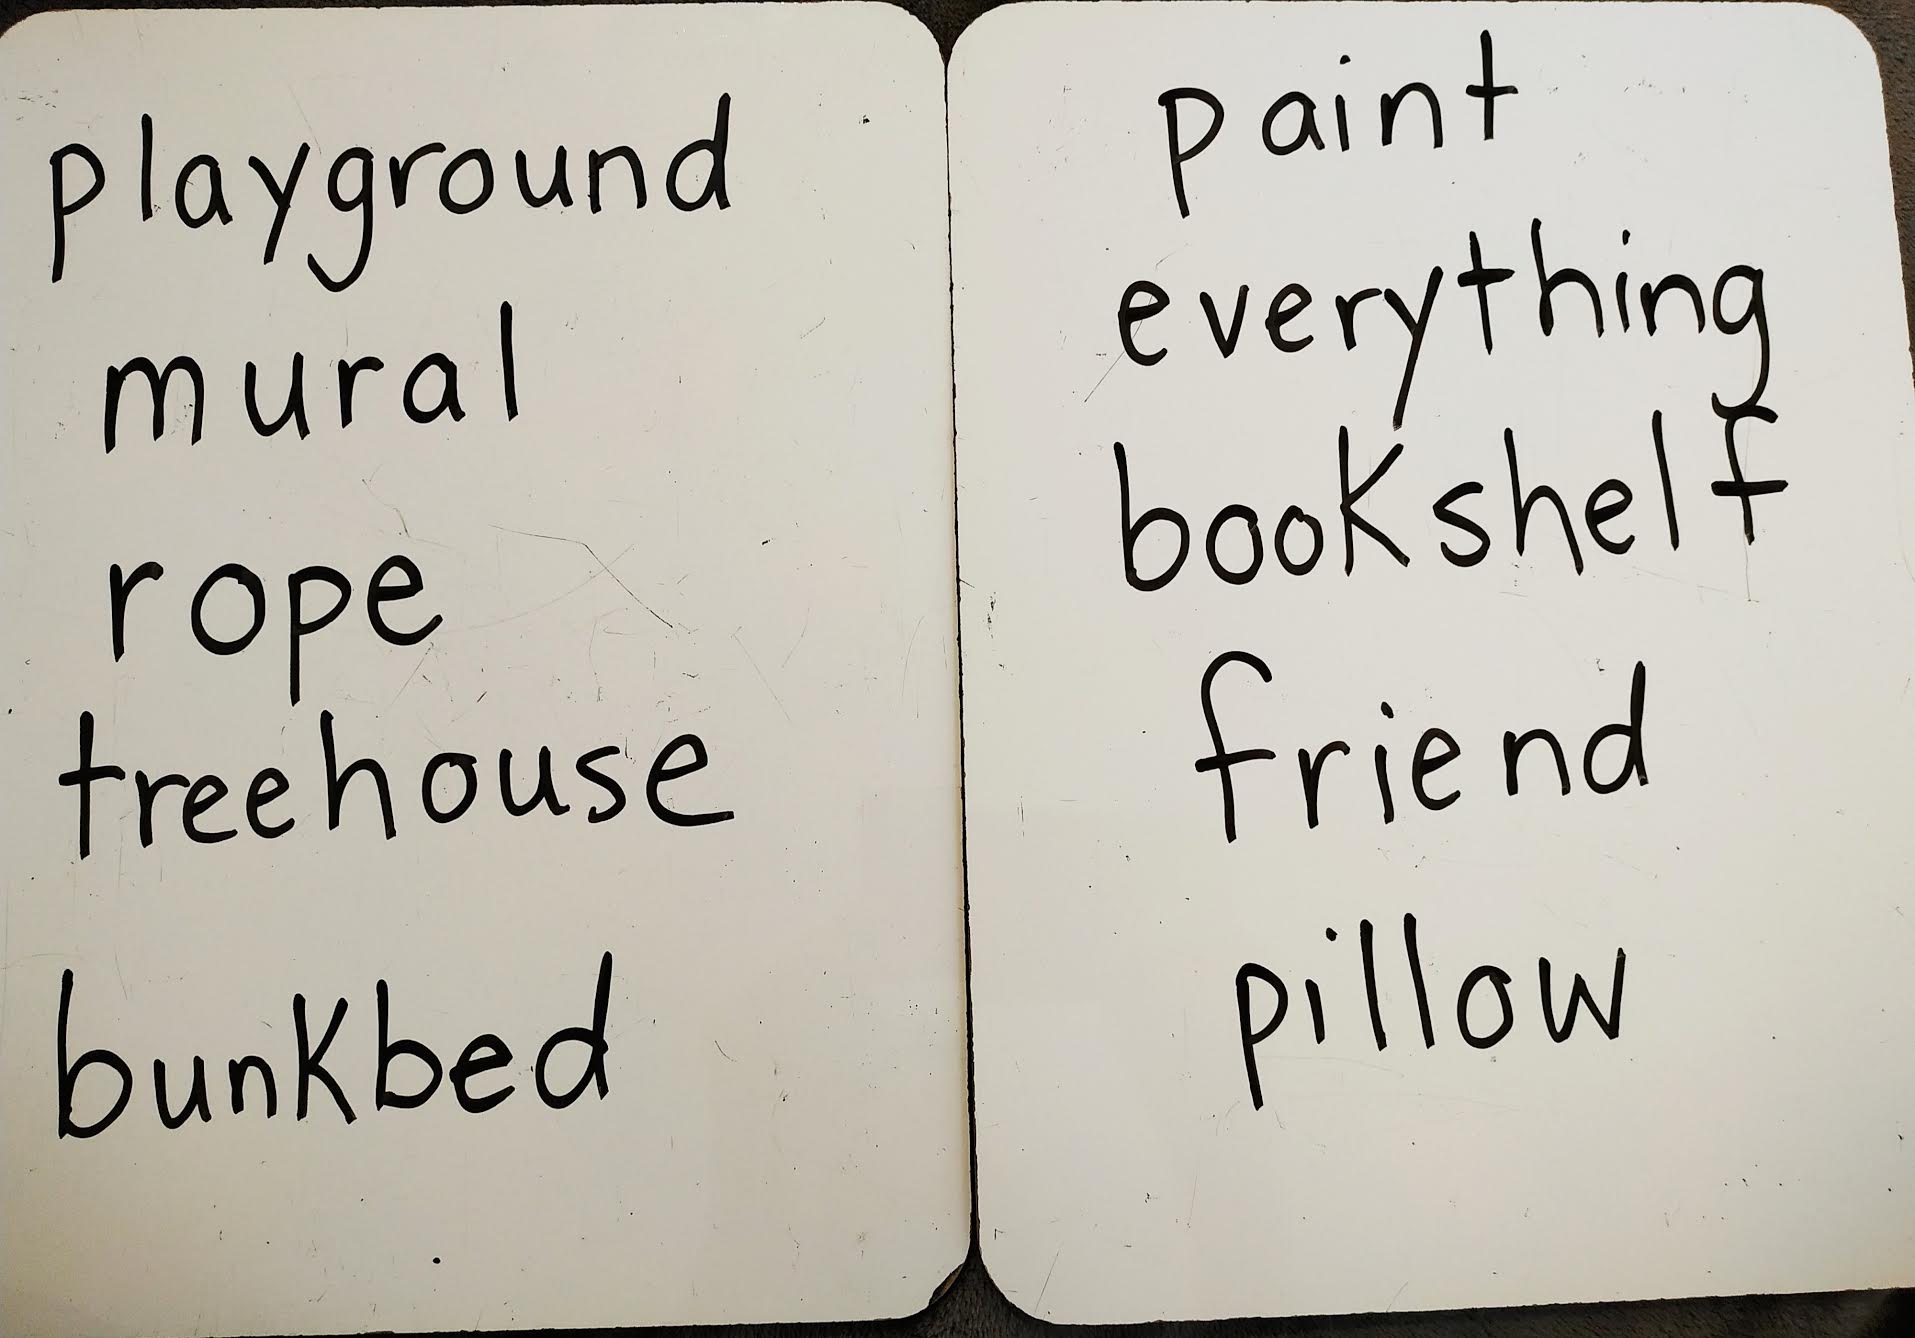 playground
mural
rope
treehouse
bunkbed
paint
everything
bookshelf
friend
pillow